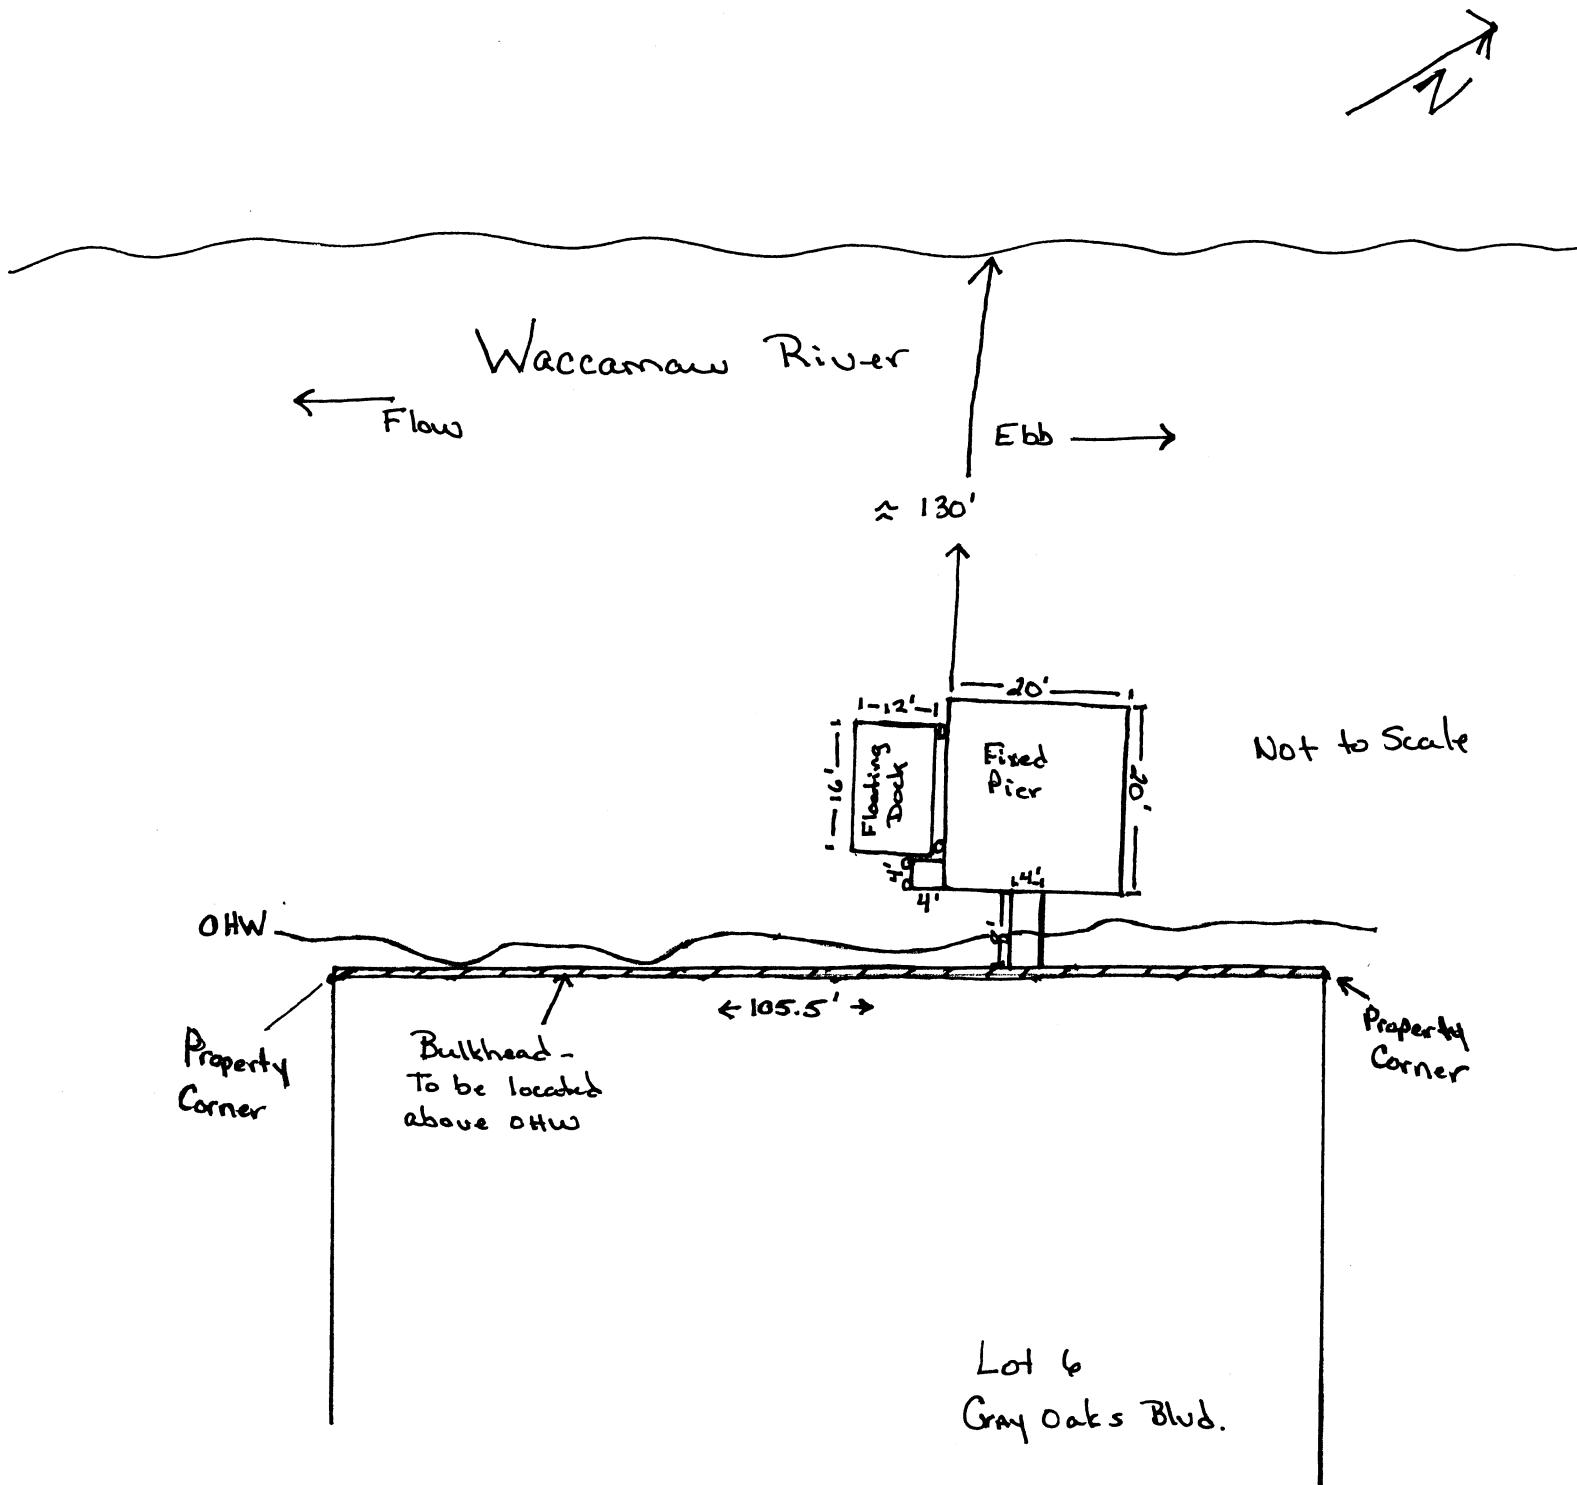 N
Waccamaw River
Flow
Ebb
≈ 130'
20'
12'
16'
Floating
Dock
Fixed
Pier
20'
Not to Scale
4'
4'
4'
8'
OHW
105.5'
Property
Corner
Bulkhead -
To be located
above OHW
Property
Corner
Lot 6
Gray Oaks Blvd.